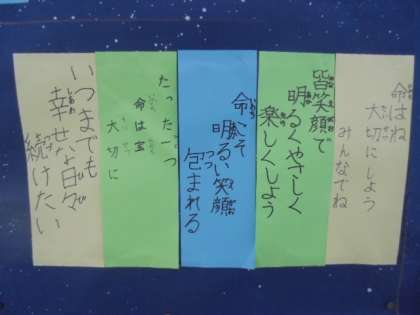 命はね
大切にしよう
みんなでね
皆笑顔で
明るくやさしく
楽しくしよう
命こそ
明るい笑顔
包まれる
たった一つ
命は宝
大切に
いつまでも
幸せな日々
続けたい